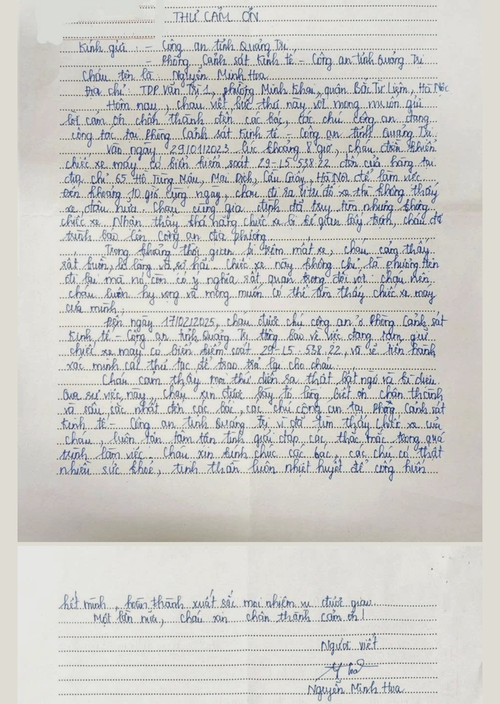 THƯ CẢM ƠN
Kính gửi : - Công an tỉnh Quảng Trị,
- Phòng Cảnh sát kinh tế - Công an tỉnh Quảng Trị
Cháu tên là : Nguyễn Minh Hoa
Địa chỉ : TDP Văn Trì 1, phường Minh Khai, quận Bắc Từ Liêm, Hà Nội
Hôm nay, cháu viết bức thư này với mong muốn gửi
lời cảm ơn chân thành đến các bác, các chú công an đang
công tác tại phòng Cảnh sát kinh tế - Công an tỉnh Quảng Trị
Vào ngày 29/01/2025 lúc khoảng 8 giờ, cháu điều khiển
chiếc xe máy có biển kiểm soát 29-L5-538.22 đến cửa hàng tại
địa chỉ 65 Hồ Tùng Mậu, Mai Dịch, Cầu Giấy, Hà Nội để làm việc
Đến khoảng 10 giờ cùng ngày, cháu đi ra vị trí đỗ xe thì không thấy
xe đâu nữa. Cháu cùng gia đình đã truy tìm nhưng không
chiếc xe. Nhận thấy khả năng chiếc xe bị kẻ gian lấy trộm, cháu đã
trình báo lên Công an địa phương
Trong khoảng thời gian bị trộm mất xe, cháu cảm thấy
rất buồn, lo lắng và sợ hãi. Chiếc xe này không chỉ là phương tiện
đi lại mà nó còn có ý nghĩa rất quan trọng đối với cháu nên,
cháu luôn hy vọng và mong muốn có thể tìm thấy chiếc xe máy
của mình.
Đến ngày 17/02/2025, cháu được chú công an ở Phòng Cảnh sát
kinh tế - Công an tỉnh Quảng Trị thông báo về việc đang tạm giữ
chiếc xe máy có biển kiểm soát 29-L5-538.22, và sẽ tiến hành
xác minh các thủ tục để trao trả lại cho cháu.
Cháu cảm thấy mọi thứ diễn ra thật bất ngờ và kì diệu.
Qua sự việc này, cháu xin được bày tỏ lòng biết ơn chân thành
và sâu sắc nhất đến các bác, các chú công an tại Phòng Cảnh sát
kinh tế - Công an tỉnh Quảng Trị vì đã tìm thấy chiếc xe của
cháu, luôn tận tâm tận tình giải đáp các thắc mắc trong quá
trình làm việc. Cháu xin kính chúc các bác, các chú có thật
nhiều sức khoẻ, tinh thần luôn nhiệt huyết để cống hiến
hết mình, hoàn thành xuất sắc mọi nhiệm vụ được giao
Một lần nữa, cháu xin chân thành cảm ơn!
Người viết
Nguyễn Minh Hoa